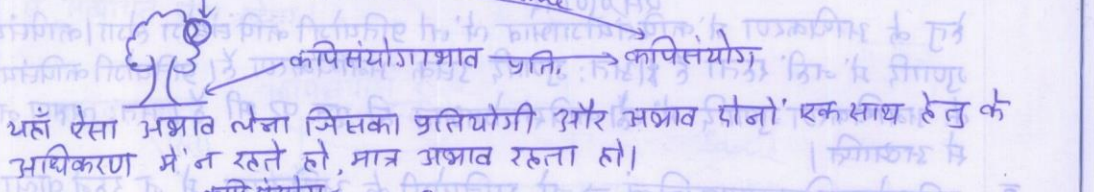 कपिसंयोगाभाव प्रति. → कपिसंयोग
यहाँ ऐसा अभाव लेना जिसका प्रतियोगी और अभाव दोनों एक साथ हेतु के
अधिकरण में न रहते हो, मात्र अभाव रहता हो।